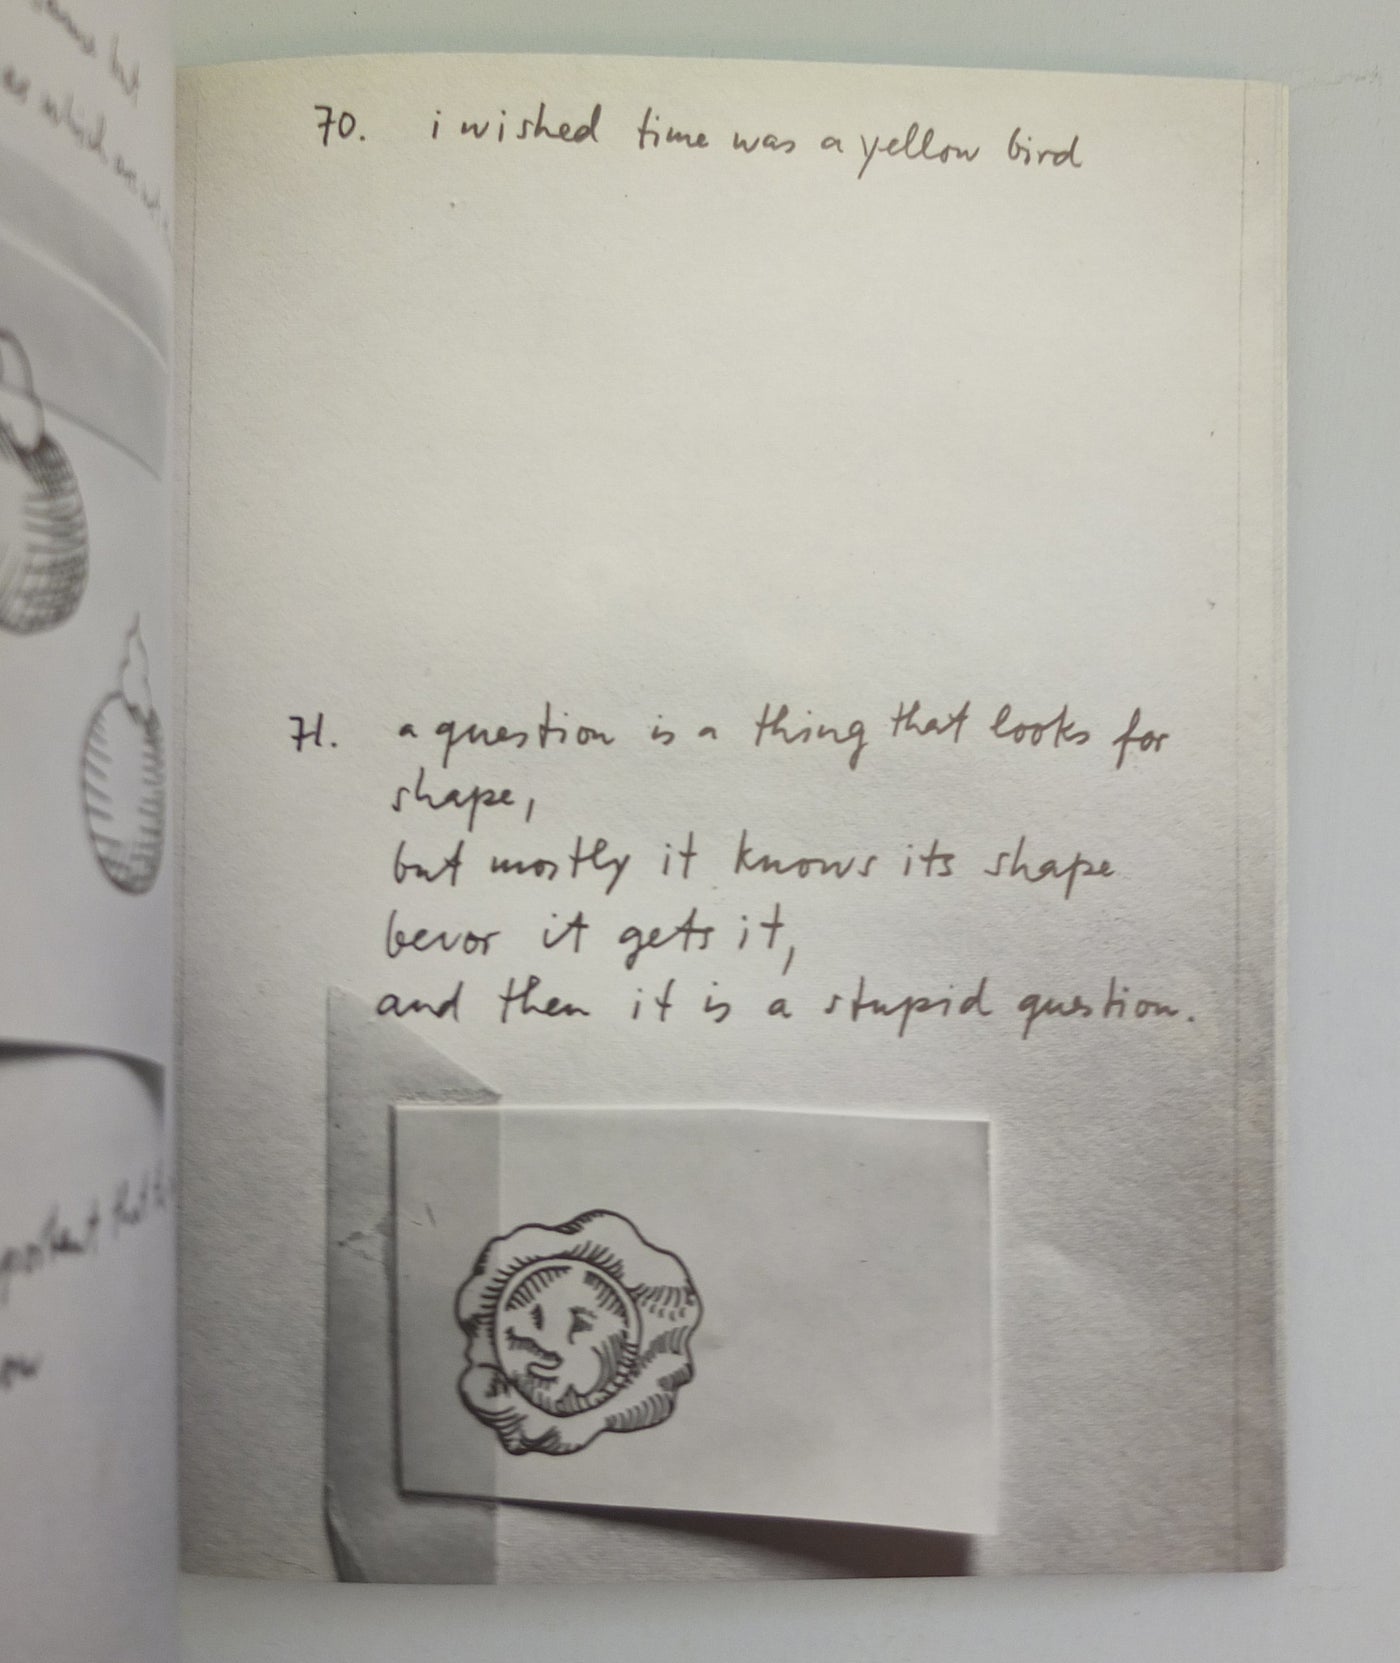 70. i wished time was a yellow bird
71. a question is a thing that looks for
shape,
but mostly it knows its shape
bevor it gets it,
and then it is a stupid question.